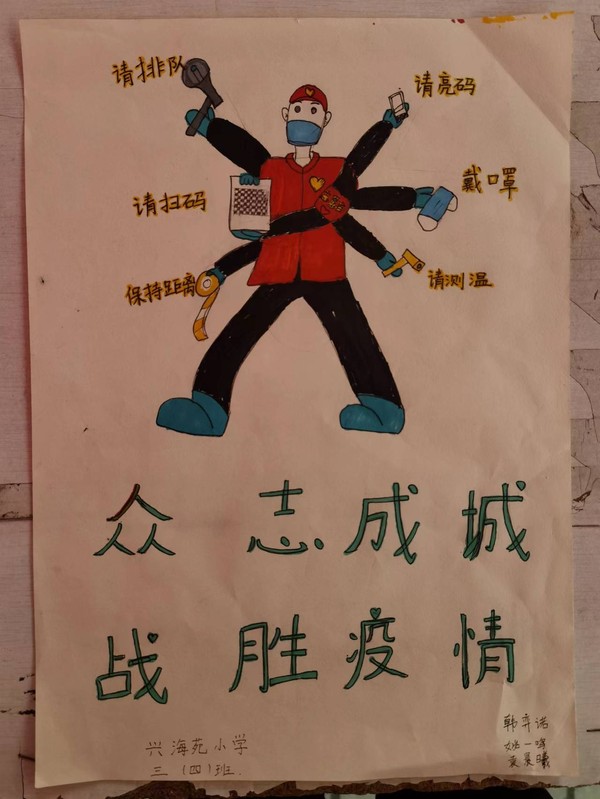 请排队
请亮码
请扫码
戴口罩
保持距离
请测温
众志成城
战胜疫情
兴海苑小学
三（四）班.
韩弈诺